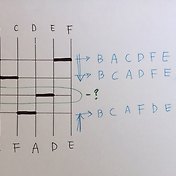 C D E F
B A C D F E
B C A D F E
- ?
B C A F D E
F A D E